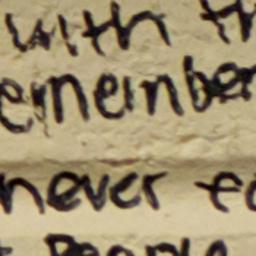 with th
emember
never fo
People